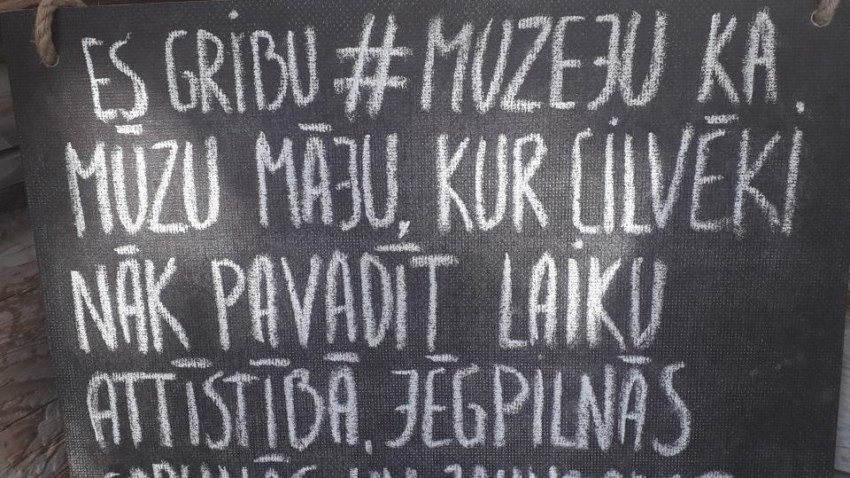 ES GRIBU #MUZEJU KA
MŪZU MĀJU, KUR CILVĒKI
NĀK PAVADĪT LAIKU
ATTĪSTĪBĀ, JĒGPILNĀS